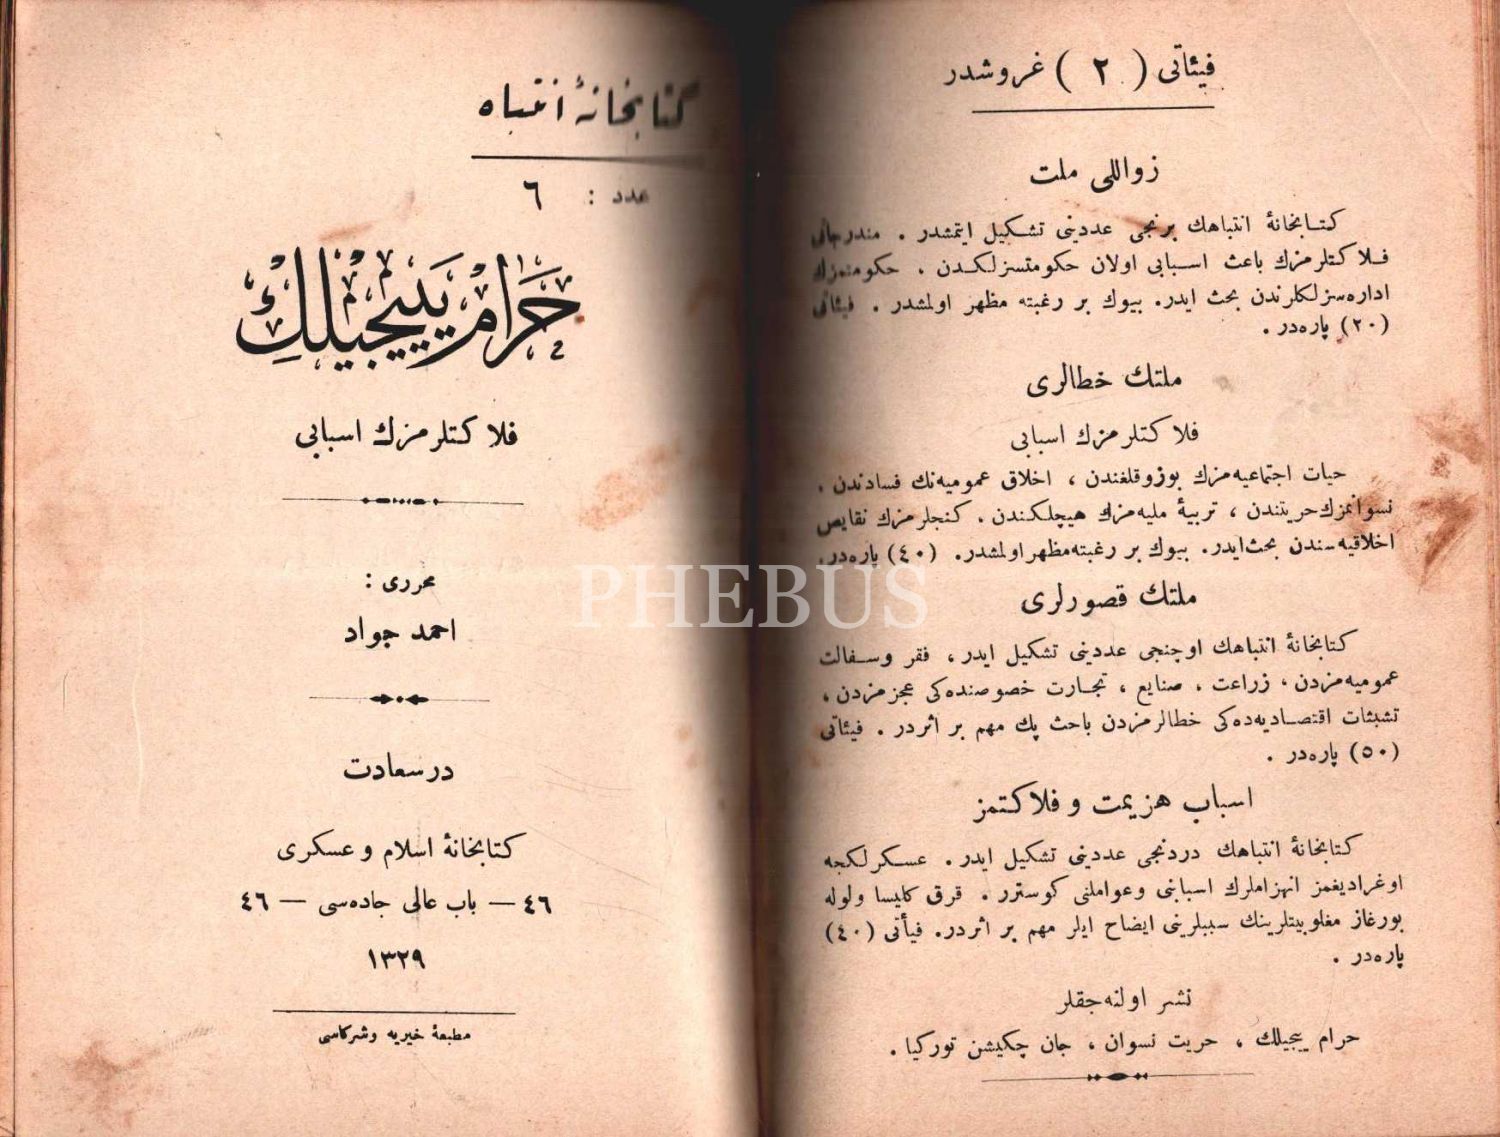 فيئاتى ( ٢ ) غروشدر
زواللى ملت
كتابخانهٔ انتباهك برنجى عددينى تشكيل ايتمشدر . مندرجاتى
فلاكتلرمزك باعث اسبابى اولان حكومتسزلكدن ، حكومتمزك
اداره‌سزلكلرندن بحث ايدر. بيوك بر رغبته مظهر اولمشدر . فيئاتى
(٢٠) پاره‌در .
ملتك خطالرى
فلاكتلرمزك اسبابى
حيات اجتماعيه‌مزك بوزوقلغندن ، اخلاق عموميه‌نك فسادندن ،
نسوانمزك حريتندن ، تربيهٔ مليه‌مزك هيچلكندن ، كنجلرمزك نقايص
اخلاقيه‌سندن بحث ايدر. بيوك بر رغبته مظهر اولمشدر. (٤٠) پاره‌در.
ملتك قصورلرى
كتابخانهٔ انتباهك اوچنجى عددينى تشكيل ايدر ، فقر وسفالت
عموميه‌مزدن ، زراعت ، صنايع ، تجارت خصوصنده‌كى عجزمزدن ،
تشبثات اقتصاديه‌ده‌كى خطالرمزدن باحث پك مهم بر اثردر . فيئاتى
(٥٠) پاره‌در .
اسباب هزيمت و فلاكتمز
كتابخانهٔ انتباهك دردنجى عددينى تشكيل ايدر . عسكرلكجه
اوغراديغمز انهزاملرك اسبابنى وعواملنى كوسترر . قرق كليسا ولوله
بورغاز مغلوبيتلرينك سببلرينى ايضاح ايلر مهم بر اثردر. فيأتى (٤٠)
پاره‌در .
نشر اولنه‌جقلر
حرام ييجيلك ، حريت نسوان ، جان چكيشن توركيا .
كتابخانهٔ انتباه
عدد : ٦
حَرام يِيِيجيلك
فلاكتلرمزك اسبابى
محررى :
احمد جواد
درسعادت
كتابخانهٔ اسلام و عسكرى
٤٦ — باب عالى جاده‌سى — ٤٦
١٣٢٩
مطبعهٔ خيريه وشركاسى
PHEBUS